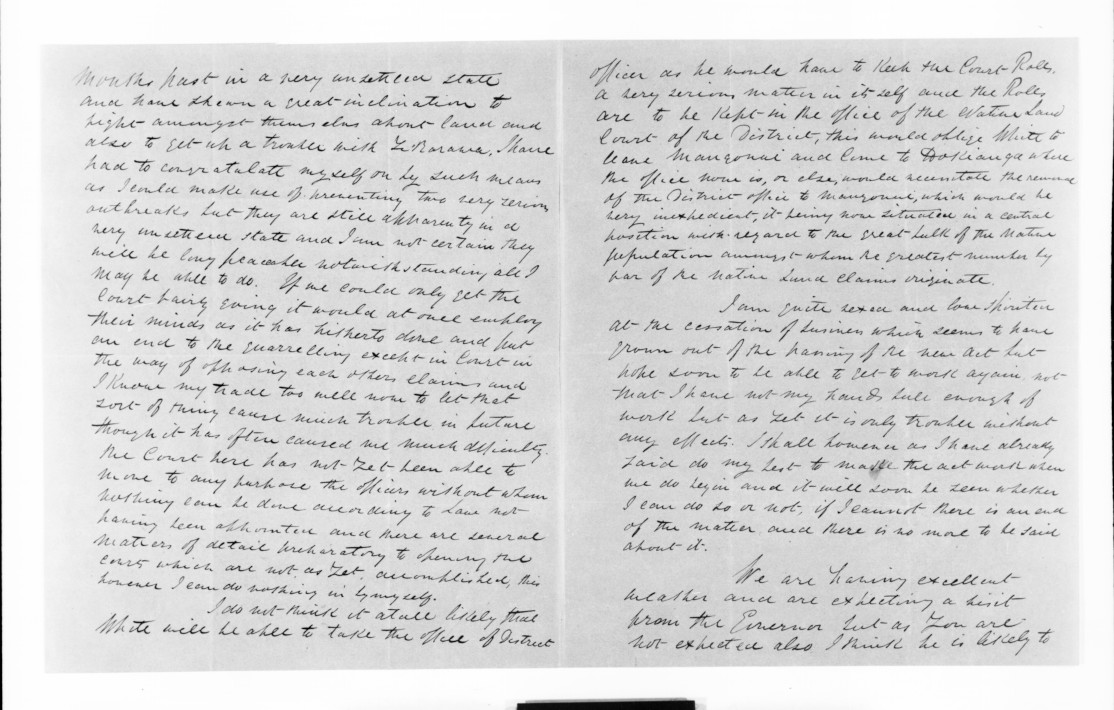 months past in a very unsettled state
and have shewn a great inclination to
fight amongst themselves about land and
also to get up a trouble with Te Rarawa, I have
had to congratulate myself on by such means
as I could make use of preventing two very serious
outbreaks but they are still apparently in a
very unsettled state and I am not certain they
will be long peaceable notwithstanding all I
may be able to do. If we could only get the
Court fairly going it would at once employ
their minds as it has hitherto done and put
an end to the quarrelling except in Court in
the way of opposing each others claims and
I know my trade too well now to let that
sort of thing cause much trouble in future
though it has often caused me much difficulty.
The Court here has not yet been able to
move to any purpose the officers without whom
nothing can be done according to Law not
having been appointed and there are several
matters of detail preparatory to opening the
court which are not as yet, accomplished, this
however I can do nothing in by myself.
I do not think it at all likely that
White will be able to take the office of District
officer as he would have to keep the Court Rolls,
a very serious matter in itself and the Rolls
are to be kept in the office of the Native Land
Court of the District, this would oblige White to
leave Mangonui and come to Hokianga where
the office now is, or else, would necessitate the removal
of the District office to Mangonui, which would be
very inexpedient, it being now situated in a central
position with regard to the great bulk of the Native
population amongst whom the greatest number by
far of the Native Land claims originate.
I am quite vexed and low spirited
at the cessation of business which seems to have
grown out of the passing of the new Act but
hope soon to be able to get to work again. not
that I have not my hands full enough of
work but as yet it is only trouble without
any effects. I shall however as I have already
said do my best to make the act work when
we do begin and it will soon be seen whether
I can do so or not, if I cannot there is an end
of the matter and there is no more to be said
about it.
We are having excellent
weather and are expecting a visit
from the Governor but as you are
not expected also I think he is likely to